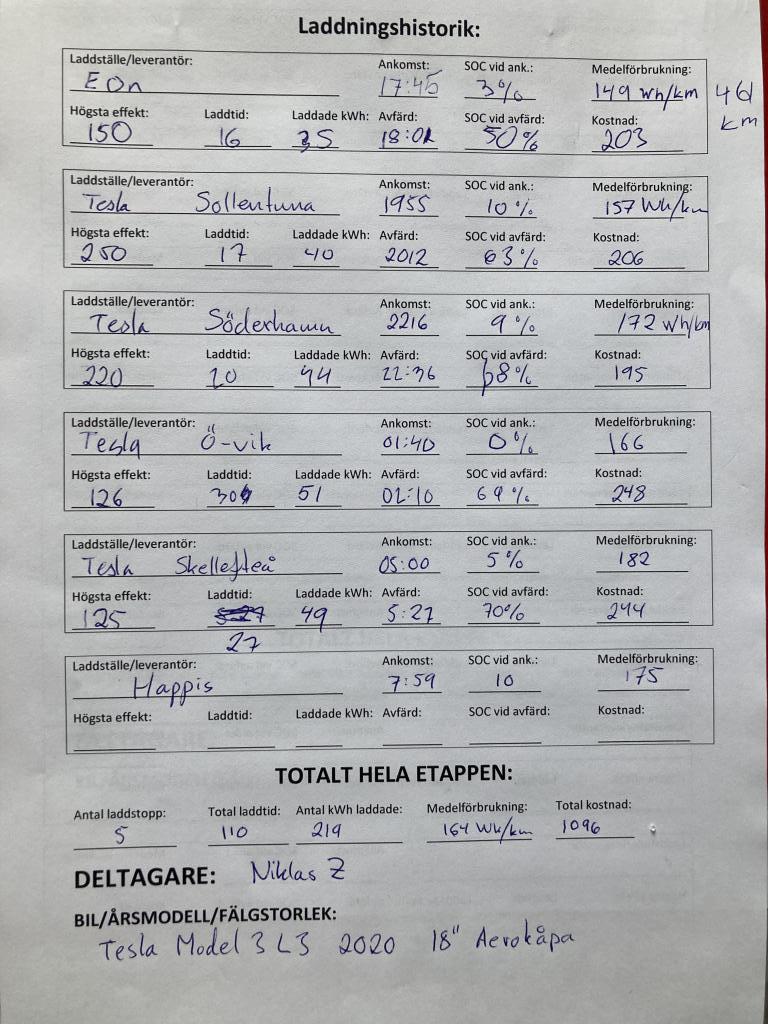 Laddningshistorik:
Laddställe/leverantör: Ankomst: SOC vid ank.: Medelförbrukning:
EOn 17:45 3% 149 Wh/km 461 km
Högsta effekt: Laddtid: Laddade kWh: Avfärd: SOC vid avfärd: Kostnad:
150 16 35 18:01 50% 203
Laddställe/leverantör: Ankomst: SOC vid ank.: Medelförbrukning:
Tesla Sollentuna 1955 10% 157 Wh/km
Högsta effekt: Laddtid: Laddade kWh: Avfärd: SOC vid avfärd: Kostnad:
250 17 40 2012 63% 206
Laddställe/leverantör: Ankomst: SOC vid ank.: Medelförbrukning:
Tesla Söderhamn 2216 9% 172 Wh/km
Högsta effekt: Laddtid: Laddade kWh: Avfärd: SOC vid avfärd: Kostnad:
220 20 44 22:36 68% 195
Laddställe/leverantör: Ankomst: SOC vid ank.: Medelförbrukning:
Tesla Ö-vik 01:40 0% 166
Högsta effekt: Laddtid: Laddade kWh: Avfärd: SOC vid avfärd: Kostnad:
126 30 51 02:10 69% 248
Laddställe/leverantör: Ankomst: SOC vid ank.: Medelförbrukning:
Tesla Skellefteå 05:00 5% 182
Högsta effekt: Laddtid: Laddade kWh: Avfärd: SOC vid avfärd: Kostnad:
125 49 5:27 70% 244
27
Laddställe/leverantör: Ankomst: SOC vid ank.: Medelförbrukning:
Happis 7:59 10 175
Högsta effekt: Laddtid: Laddade kWh: Avfärd: SOC vid avfärd: Kostnad:
TOTALT HELA ETAPPEN:
Antal laddstopp: Total laddtid: Antal kWh laddade: Medelförbrukning: Total kostnad:
5 110 219 164 Wh/km 1096
DELTAGARE: Niklas Z
BIL/ÅRSMODELL/FÄLGSTORLEK:
Tesla Model 3 L3 2020 18" Aerokåpa